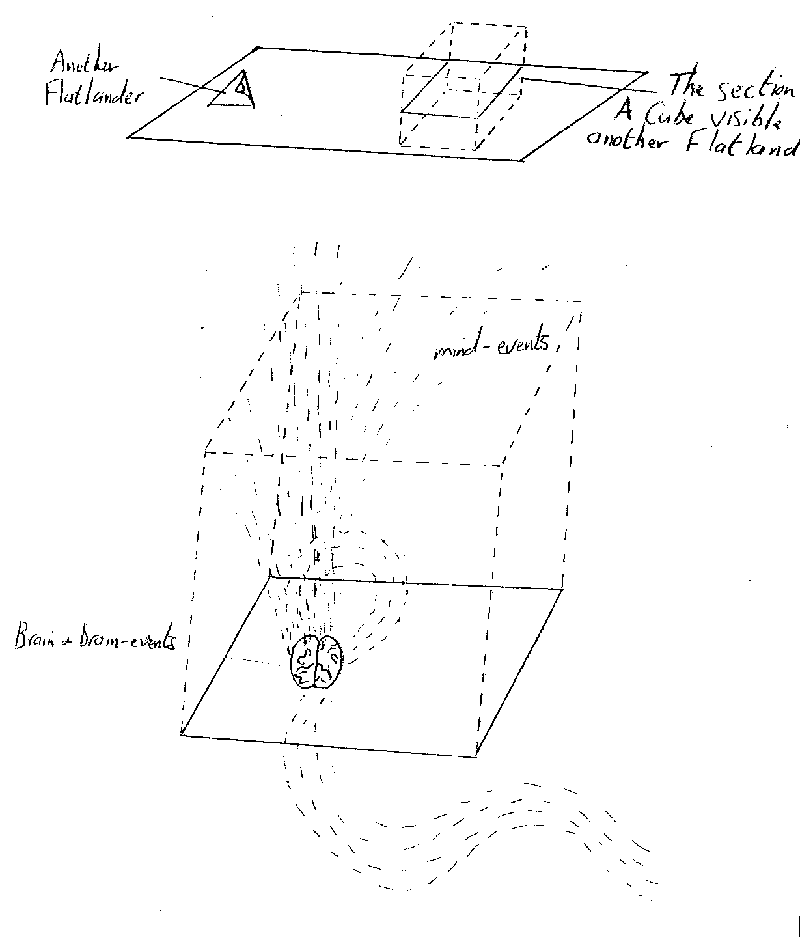 Another
Flatlander
The section
A Cube visible
another Flatland
mind-events
Brain + Brain-events